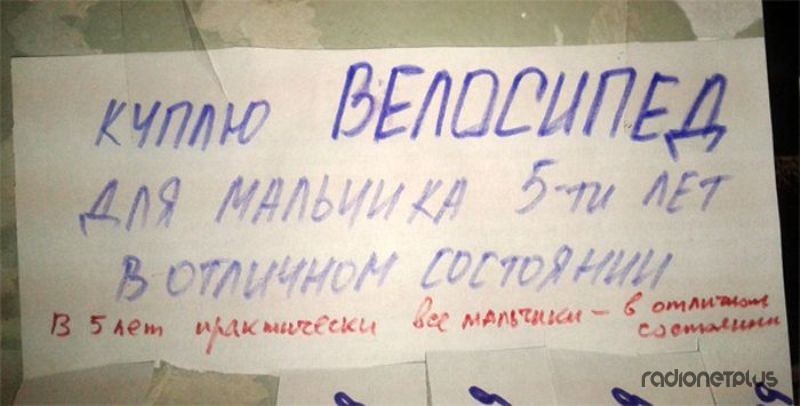 КУПЛЮ ВЕЛОСИПЕД
ДЛЯ МАЛЬЧИКА 5-ти ЛЕТ
В ОТЛИЧНОМ СОСТОЯНИИ
В 5 лет практически все мальчики – в отличном
состоянии
radionetplus